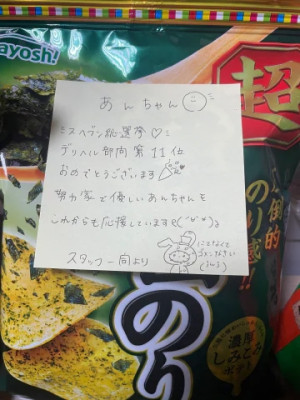 ayosh!
超
圧倒的
のり感!!
あんちゃん
ミスヘブン総選挙♡
デリヘル部門 第11位
おめでとうございます
努力家で優しいあんちゃんを
これからも応援しています
スタッフ一同より
のり
濃厚
しみこみ
ポテト